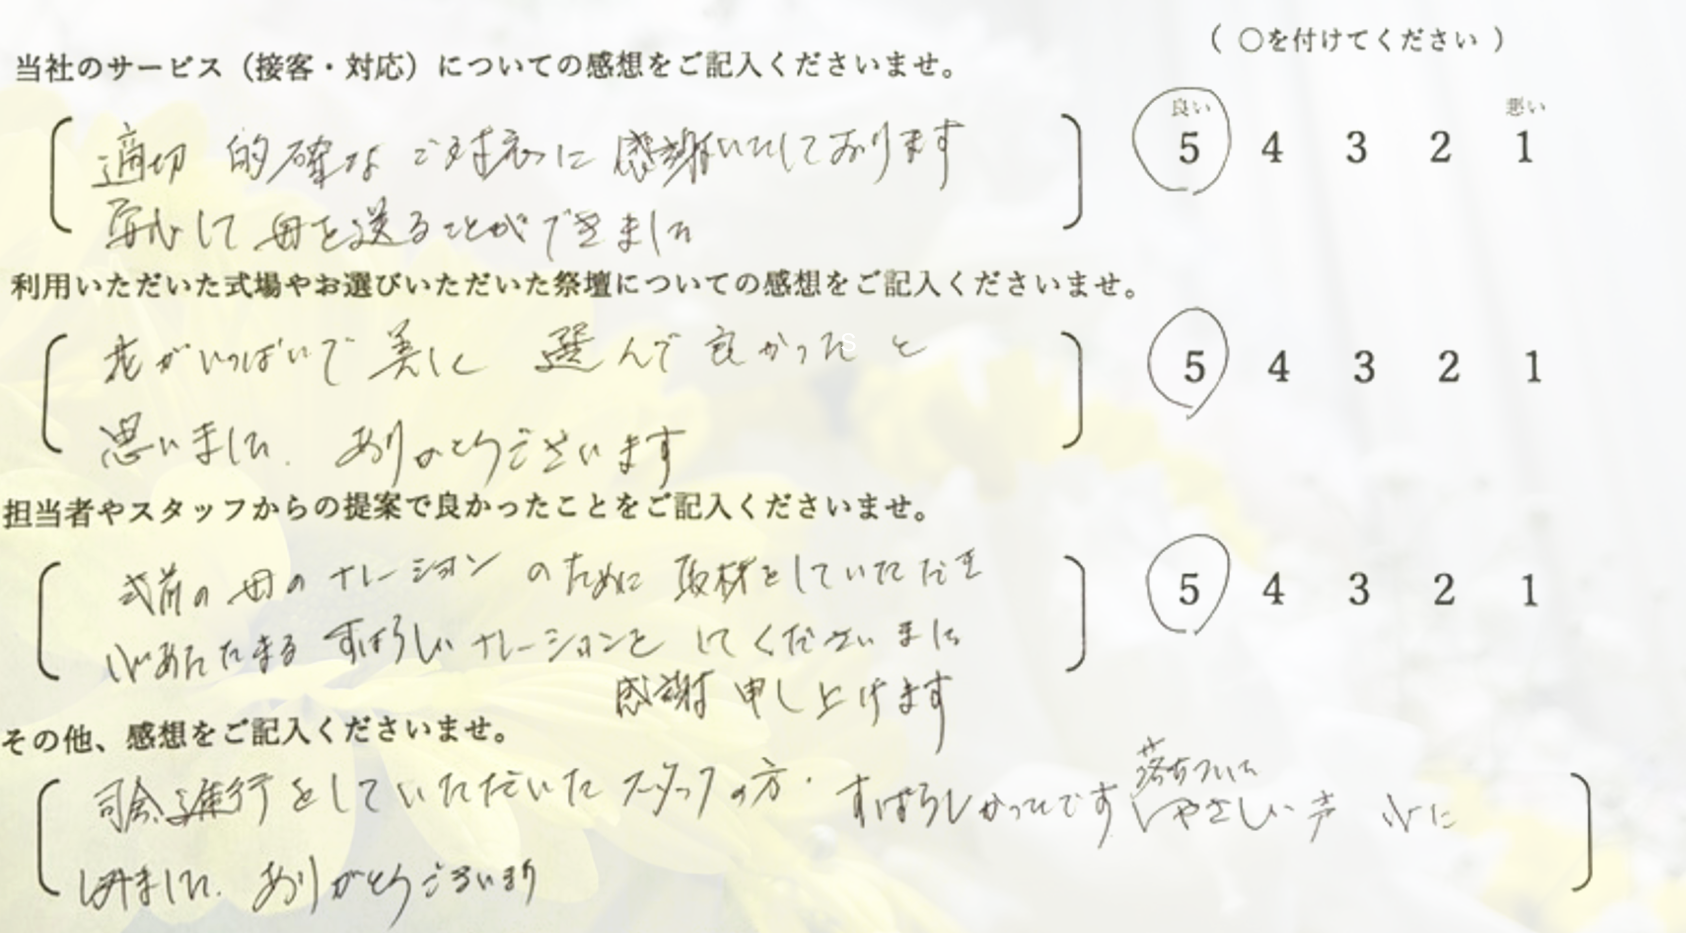 （ ○を付けてください ）
当社のサービス（接客・対応）についての感想をご記入くださいませ。
良い 悪い
5 4 3 2 1
適切 的確な ご対応に 感謝いたしております
安心して 母を送ることができました
利用いただいた式場やお選びいただいた祭壇についての感想をご記入くださいませ。
花がいっぱいで 美しく 選んで 良かった と
5 4 3 2 1
思いました. ありがとうございます
担当者やスタッフからの提案で良かったことをご記入くださいませ。
式前の 母の ナレーション のために 取材をしていただき
5 4 3 2 1
心があたたまる すばらしい ナレーションを してくださいました
感謝 申し上げます
その他、感想をご記入くださいませ。
落ちついた
司会進行をしていただいた スタッフの方・すばらしかったです やさしい声 心に
しみました. ありがとうございます